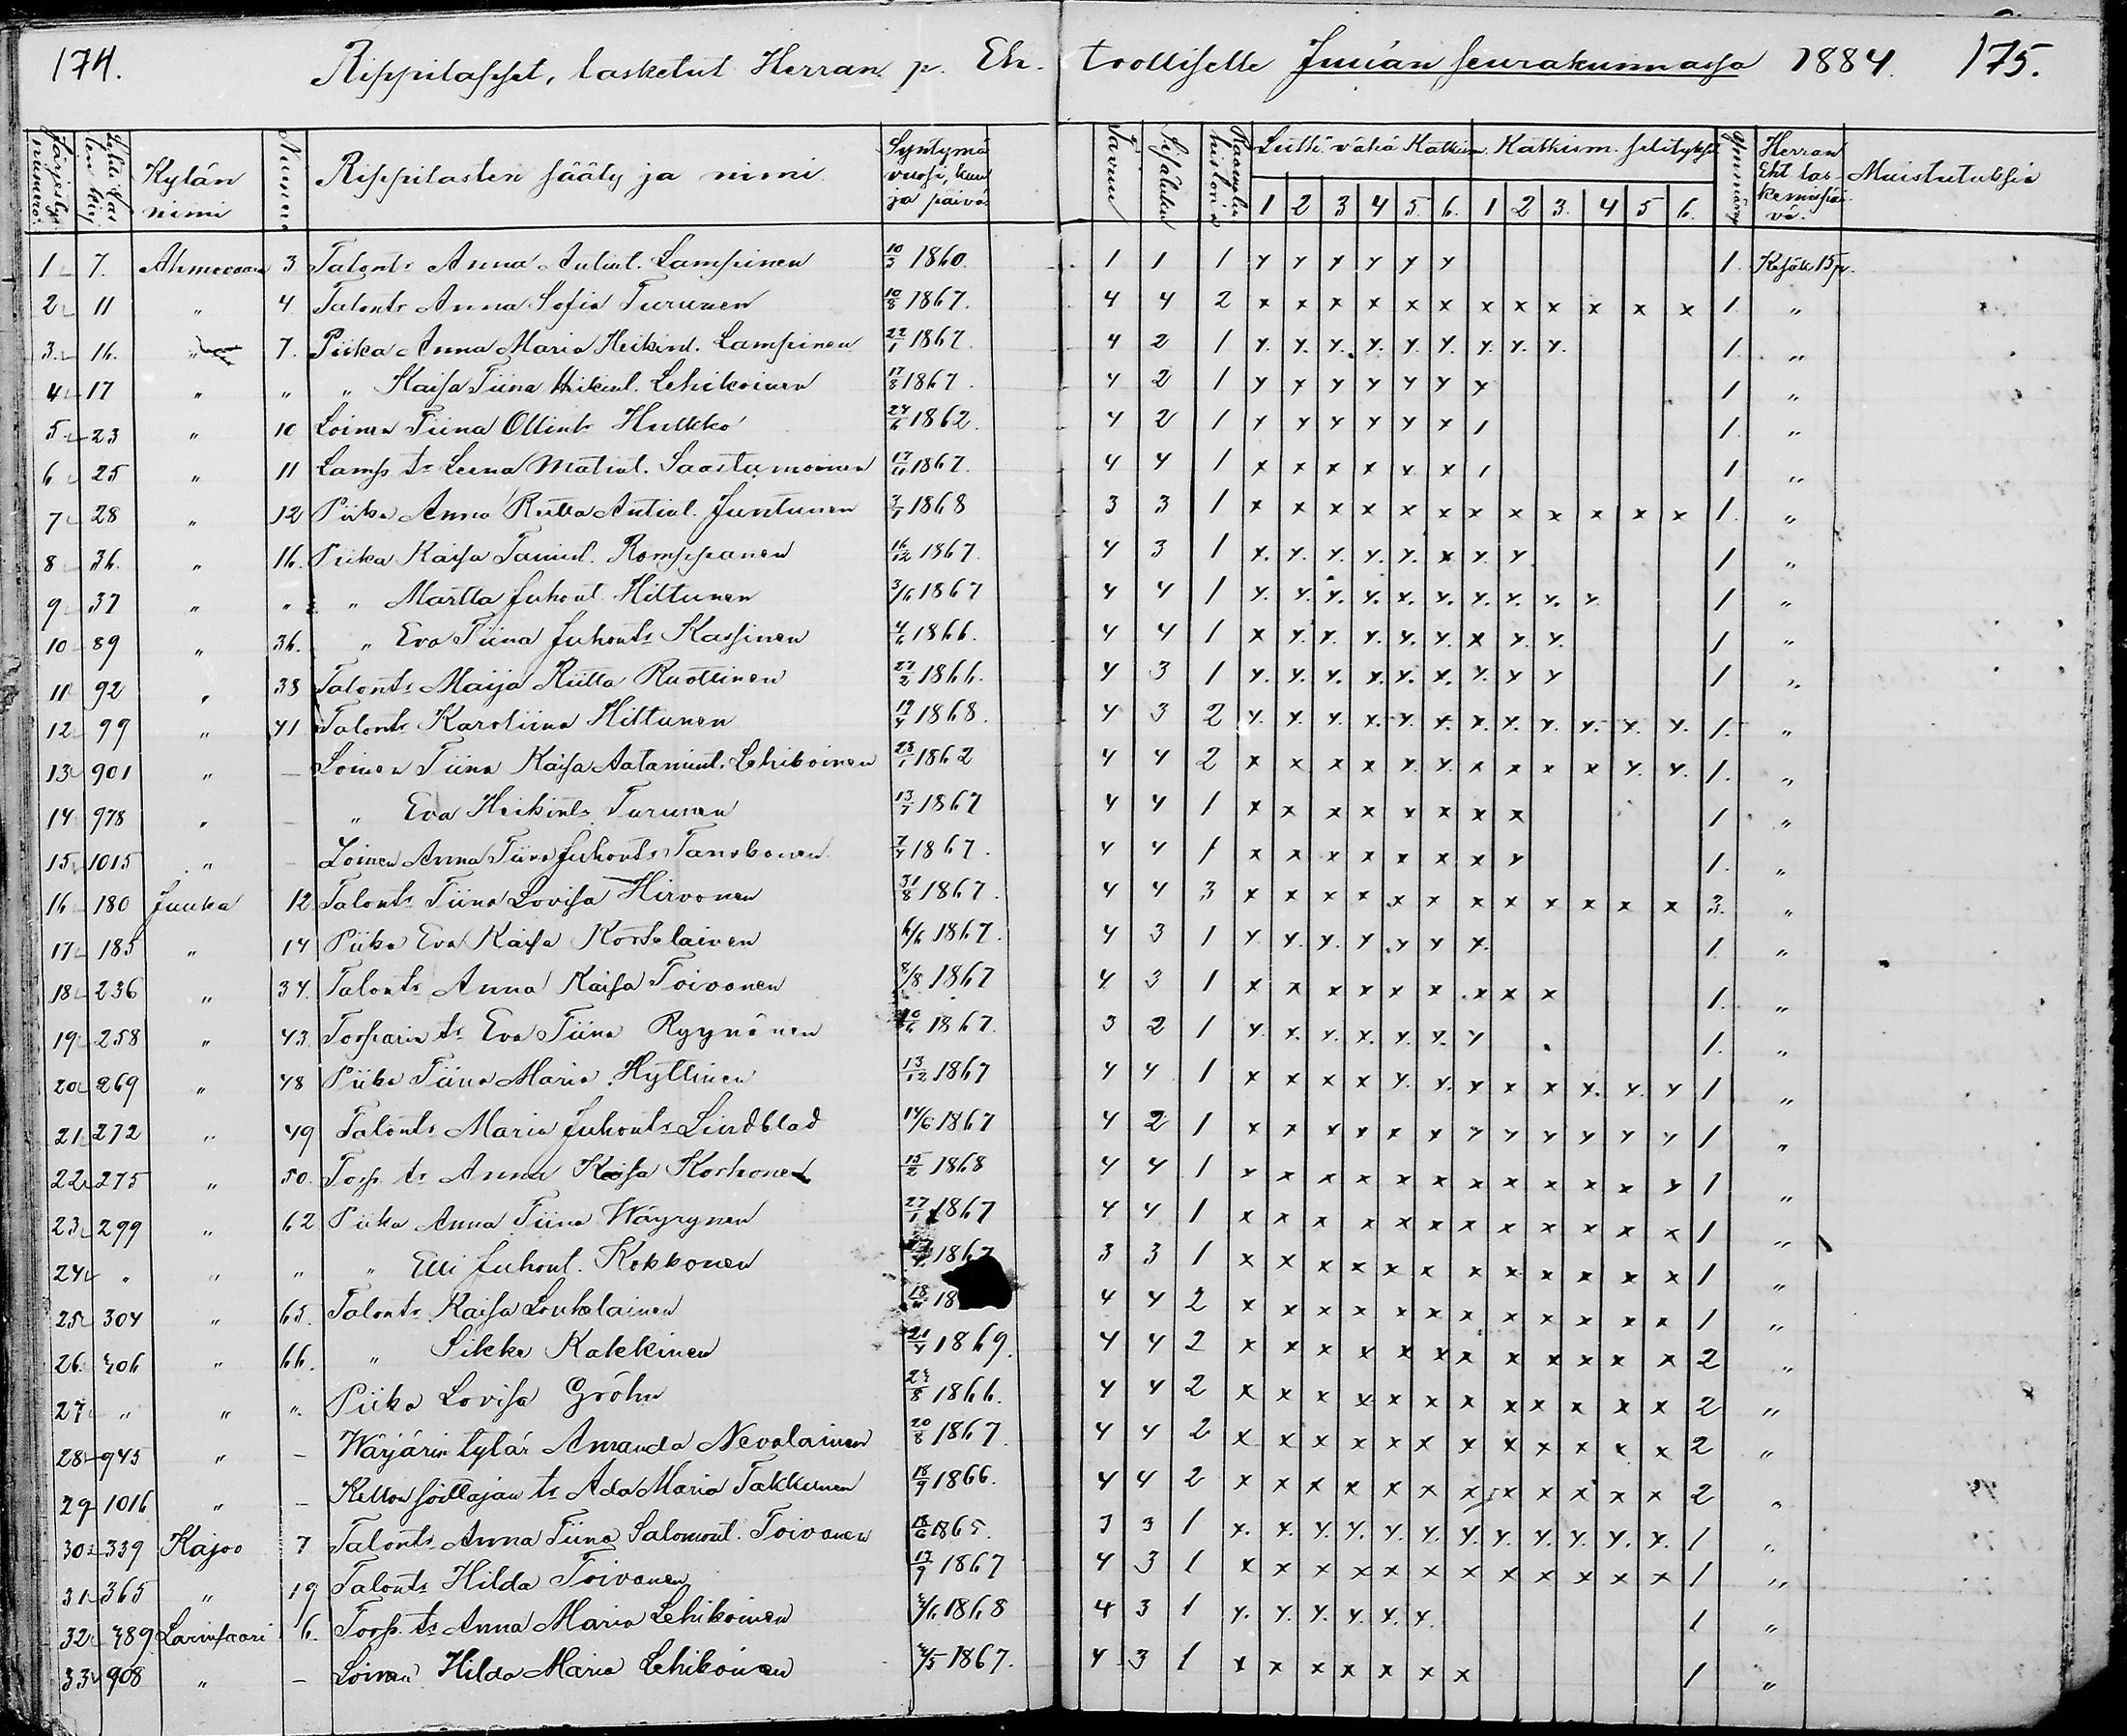 174. Rippilapset, lasketut Herran p. Eh- trolliselle Juuan seurakunnassa 1884. 175.
Järjestys numero. Kylän nimi Numero Rippilasten sääty ja nimi. Syntymä vuosi, kuu ja päivä. Tavuu Sisäluku historia Luth. vähä Katkism. Katkism. selitykset Ymmärrys Herran Eht. las- kemispäi- vä. Muistutuksia
1 2 3 4 5. 6. 1 2 3. 4 5 6.
1 7. Ahmovaara 3. Talont. Anna Antint. Lampinen 10/3 1860. 1 1 1 y y y y y y 1. Kesäk 15 p.
2 11 " 4. Talont. Anna Sofia Turunen 10/8 1867. 4 4 2 x x x x x x x x x x x x 1. "
3. 16. " 7. Piika Anna Maria Heikint. Lampinen 22/1 1867. 4 2 1 y. y. y. y. y. y. y. y. y. 1. "
4 17 " " " Kaisa Tiina Heikint. Lehikoinen 17/8 1867. 4 2 1 y y y y y y y 1 "
5 23 " 10 Loinen Tiina Ollint. Hulkko 24/6 1862. 4 2 1 y y y y y x 1 1. "
6 25 " 11 Lamp. ts Leena Matint. Saastamoinen 17/11 1867. 4 4 1 x x x x x x 1 1 "
7 28 " 12 Piika Anna Riitta Antint. Juntunen 1868 3 3 1 x x x x x x x x x x x x 1. "
8 36. " 16. Piika Kaisa Tanielt. Romppanen 16/12 1867. 4 3 1 x. y. y. y. y. x y. y 1 "
9 37 " " " Martta Juhont. Hiltunen 3/6 1867 4 4 1 y. y. y. y. y. y. y. y. y. y. 1 "
10 89 " 36. " Eva Tiina Juhonts Kassinen 4/6 1866. 4 4 1 x y. y. y. y. y. x y. y. 1 "
11 92 " 38 Talonts Maija Riitta Ruottinen 27/2 1866. 4 3 1 y. y. y. y. y. y. y. y y 1 "
12 99 " 41 Talonts Karoliina Hiltunen 19/4 1868. 4 3 2 y. y. y. y. y. y. y. y. y. y. y. y. 1. "
13 901 " – Loinen Tiina Kaisa Aatamint. Lehikoinen 28/1 1862 4 4 2 x x x x y. y. x x x x y. y. 1. "
14 978 " – " Eva Heikints. Turunen 13/7 1867 4 4 1 x x x x x x x x 1 "
15 1015 " – Loinen Anna Tiina Juhonts Tanskanen 7/4 1867. 4 4 1 x x x x x x x y 1. "
16 180 Juuka 12 Talonts Tiina Lovisa Hirvonen 31/8 1867. 4 4 3 x x x x x x x x x x x x 3. "
17 185 " 14 Piika Eva Kaisa Korte­lainen 6/6 1867. 4 3 1 y. y. y. y y y y. 1 "
18 236 " 34. Talonts Anna Kaisa Toivonen 8/8 1867 4 3 1 x x x x x x x x x 1. "
19 258 " 43. Torparin ts Eva Tiina Ryynänen 1867. 3 2 1 y. x. y. x. y. y. y 1. "
20 269 " 48 Piika Tiina Maria Hyttinen 13/12 1867 4 4 1 x x x x y. y. y x x y. y. y 1 "
21 272 " 49 Talonts Maria Juhonts Lindblad 14/6 1867 4 2 1 x x x x x x y y y y y y 1 "
22 275 " 50. Torp. ts Anna Kaisa Korhonen 15/2 1868 4 4 1 x x x x x x x x x x x y 1 "
23 299 " 62 Piika Anna Tiina Wäyrynen 27/1 1867 4 4 1 x x x x x x x x x x x x 1 "
24 " " " " Elli Juhont. Kokkonen 1867 3 3 1 x x x x x x x x x x x x 1 "
25 304 " 65. Talonts Kaisa Louhelainen 18 4 4 2 x x x x x x x x x x x x 1 "
26. 306 " 66. " Sikke Kakkinen 21/4 1869. 4 4 2 x x x x x x x x x x x x 2 "
27 " " " Piika Lovisa Gröhn 24/8 1866. 4 4 2 x x x x x x x x x x x x 2 "
28 945 " – Wärjärin tytär Amanda Nevalainen 20/8 1867. 4 4 2 x x x x x x x x x x x x 2 "
29 1016 " – Kellon soittajan ts Ada Maria Takkunen 18/9 1866. 4 4 2 x x x x x x x x x x x x 2 "
30 339 Kajoo 7 Talonts Anna Tiina Salomont. Toivanen 18/6 1865. 3 3 1 y. y. y. y. y. y. y. y. y. y. y. y. 1 "
31 365 " 19 Talonts Hilda Toivanen 1867 4 3 1 x x x x x x x x x x x x 1 "
32 389 Larinsaari 6. Torp. ts Anna Maria Lehikoinen 1868 4 3 1 y. y. y. y. y. y. 1 "
33 908 " – Loinen Hilda Maria Lehikoinen 1867. 4 3 1 x x x x x x x 1 "